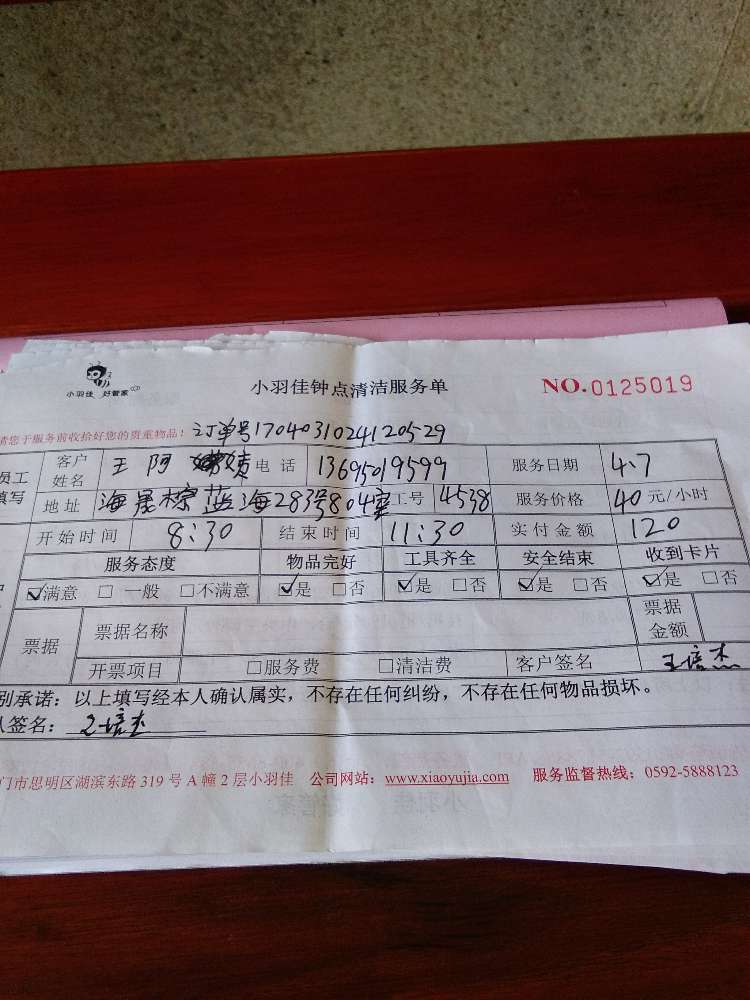 小羽佳 好管家
小羽佳钟点清洁服务单
NO.0125019
请您于服务前收拾好您的贵重物品! 订单号1704031024120529
员工填写
客户姓名 王阿 电话 13695019599 服务日期 4.7
地址 海晟棕蓝海283号804室 工号 4538 服务价格 40 元/小时
开始时间 8:30 结束时间 11:30 实付金额 120
服务态度 物品完好 工具齐全 安全结束 收到卡片
☑满意 □一般 □不满意 ☑是 □否 ☑是 □否 ☑是 □否 ☑是 □否
票据 票据名称 票据金额
开票项目 □服务费 □清洁费 客户签名 王培杰
别承诺:以上填写经本人确认属实,不存在任何纠纷,不存在任何物品损坏。
人签名: 王培杰
门市思明区湖滨东路 319 号 A 幢 2 层小羽佳 公司网站: www.xiaoyujia.com 服务监督热线: 0592-5888123